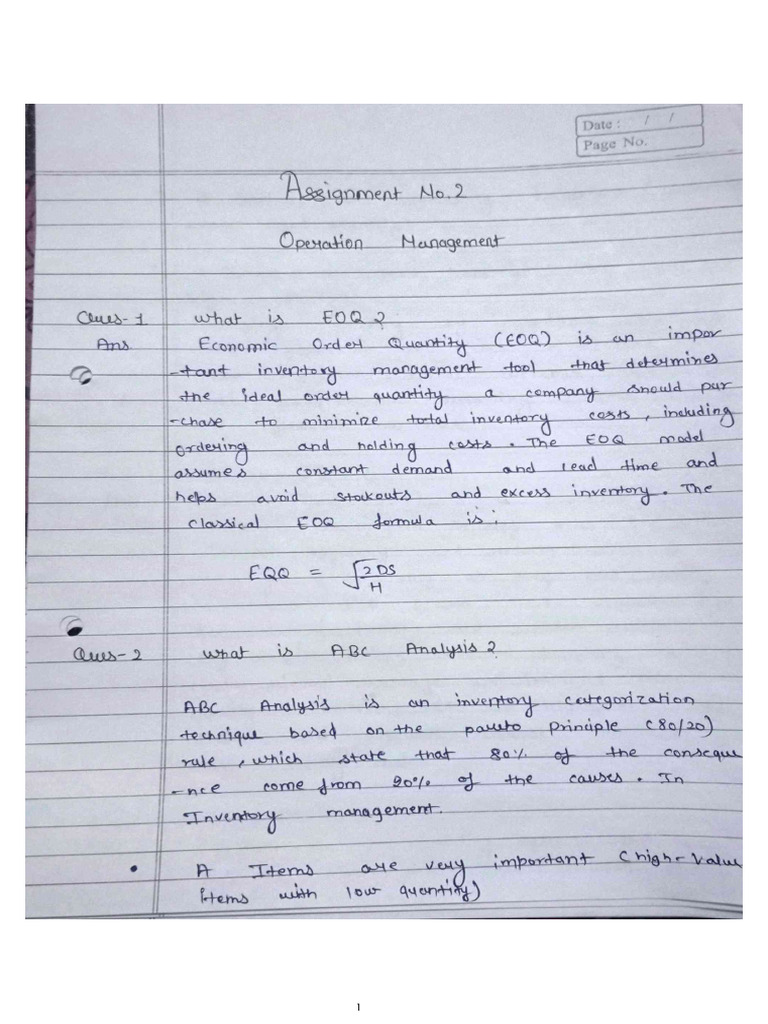 Date : / /
Page No.
Assignment No. 2
Operation Management
Ques-1 What is EOQ ?
Ans Economic Order Quantity (EOQ) is an impor
-tant inventory management tool that determines
the ideal order quantity a company should pur
-chase to minimize total inventory costs, including
ordering and holding costs. The EOQ model
assumes constant demand and lead time and
helps avoid stockouts and excess inventory. The
classical EOQ formula is:
EQQ = √2DS
H
Ques-2 What is ABC Analysis ?
ABC Analysis is an inventory categorization
technique based on the pareto Principle (80/20)
rule, which state that 80% of the conseque
-nce come from 20% of the causes. In
Inventory management.
• A Items are very important (high-value
items with low quantity)
1